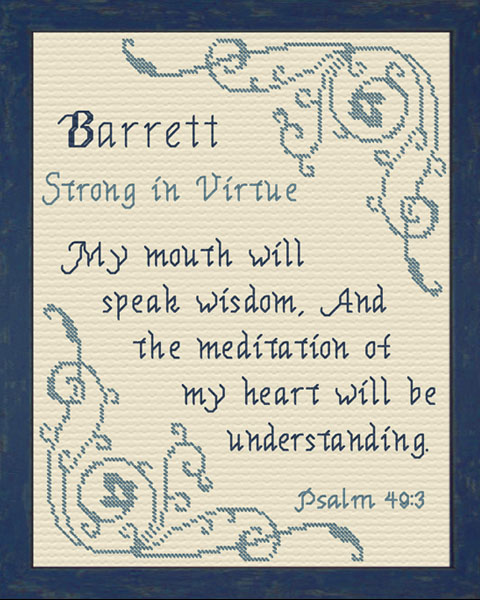 Barrett
Strong in Virtue
My mouth will
speak wisdom, And
the meditation of
my heart will be
understanding.
Psalm 49:3